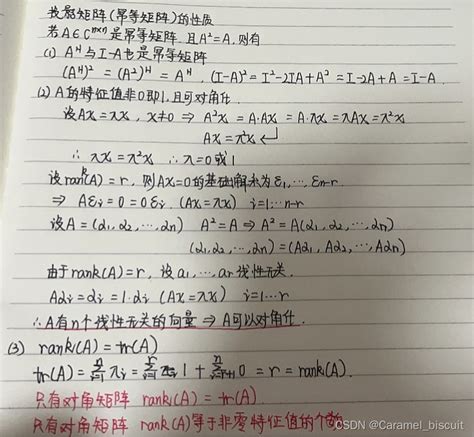 投影矩阵(幂等矩阵)的性质
若A∈Cⁿˣⁿ是幂等矩阵,且A²=A,则有
(1) Aᴴ与I-A也是幂等矩阵
(Aᴴ)² = (A²)ᴴ = Aᴴ , (I-A)² = I²-2IA+A² = I-2A+A = I-A
(2) A的特征值非0即1,且可对角化.
设Axᵢ = λxᵢ, x≠0 ⇒ A²xᵢ = A·Axᵢ = A·λxᵢ = λAxᵢ = λ²xᵢ
Axᵢ = λ²xᵢ ↵
∴ λxᵢ = λ²xᵢ ∴ λ=0或1
设rank(A)=r, 则Ax=0的基础解系为ε₁,…,εn-r
⇒ Aεᵢ = 0 = 0εᵢ (Ax=λx) i=1…n-r
设A=(α₁,α₂,…,αn) A²=A ⇒ A²=A(α₁,α₂,…,αn)
(α₁,α₂,…,αn) = (Aα₁,Aα₂,…,Aαn)
由于rank(A)=r, 设a₁,…,ar线性无关.
Aαᵢ=αᵢ=1·αᵢ (Ax=λx) i=1…r
∴A有n个线性无关的向量 ⇒ A可以对角化.
(3) rank(A) = tr(A)
tr(A) = Σⁿᵢ₌₁ λᵢ = Σʳᵢ₌₁ 1 + Σⁿᵢ₌ᵣ₊₁ 0 = r = rank(A).
只有对角矩阵 rank(A) = tr(A)
只有对角矩阵 rank(A)等于非零特征值的个数
CSDN @Caramel_biscuit